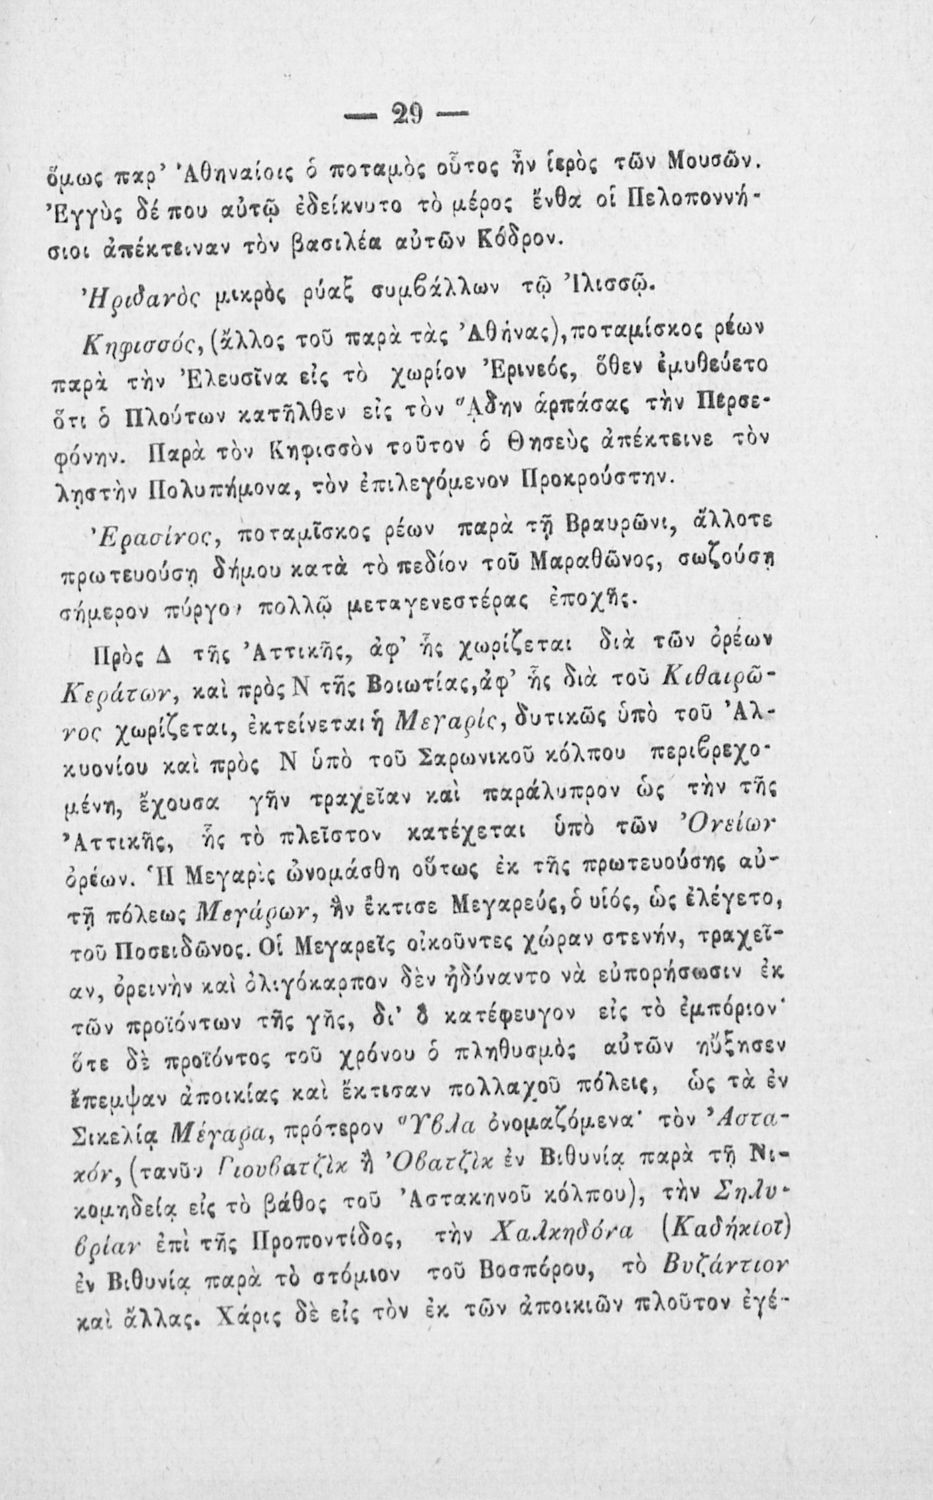 — 29 —
ὅμως παρ' Ἀθηναίοις ὁ ποταμὸς οὗτος ἦν ἱερὸς τῶν Μουσῶν.
Ἐγγὺς δέ που αὐτῷ ἐδείκνυτο τὸ μέρος ἔνθα οἱ Πελοποννή-
σιοι ἀπέκτειναν τὸν βασιλέα αὐτῶν Κόδρον.
Ἠριδανὸς μικρὸς ρύαξ συμβάλλων τῷ Ἰλισσῷ.
Κηφισσός, (ἄλλος τοῦ παρὰ τὰς Ἀθήνας), ποταμίσκος ρέων
παρὰ τὴν Ἐλευσῖνα εἰς τὸ χωρίον Ἐρινεός, ὅθεν ἐμυθεύετο
ὅτι ὁ Πλούτων κατῆλθεν εἰς τὸν ᾍδην ἁρπάσας τὴν Περσε-
φόνην. Παρὰ τὸν Κηφισσὸν τοῦτον ὁ Θησεὺς ἀπέκτεινε τὸν
λῃστὴν Πολυπήμονα, τὸν ἐπιλεγόμενον Προκρούστην.
Ἐρασίνος, ποταμῖσκος ρέων παρὰ τῇ Βραυρῶνι, ἄλλοτε
πρωτευούσῃ δήμου κατὰ τὸ πεδίον τοῦ Μαραθῶνος, σωζούσῃ
σήμερον πύργον πολλῷ μεταγενεστέρας ἐποχῆς.
Πρὸς Δ τῆς Ἀττικῆς, ἀφ' ἧς χωρίζεται διὰ τῶν ὀρέων
Κεράτων, καὶ πρὸς Ν τῆς Βοιωτίας, ἀφ' ἧς διὰ τοῦ Κιθαιρῶ-
νος χωρίζεται, ἐκτείνεται ἡ Μεγαρίς, δυτικῶς ὑπὸ τοῦ Ἀλ-
κυονίου καὶ πρὸς Ν ὑπὸ τοῦ Σαρωνικοῦ κόλπου περιβρεχο-
μένη, ἔχουσα γῆν τραχεῖαν καὶ παράλυπρον ὡς τὴν τῆς
Ἀττικῆς, ἧς τὸ πλεῖστον κατέχεται ὑπὸ τῶν Ὀνείων
ὀρέων. Ἡ Μεγαρὶς ὠνομάσθη οὕτως ἐκ τῆς πρωτευούσης αὐ-
τῇ πόλεως Μεγάρων, ἣν ἔκτισε Μεγαρεύς, ὁ υἱός, ὡς ἐλέγετο,
τοῦ Ποσειδῶνος. Οἱ Μεγαρεῖς οἰκοῦντες χώραν στενήν, τραχεῖ-
αν, ὀρεινὴν καὶ ὀλιγόκαρπον δὲν ἠδύναντο νὰ εὐπορήσωσιν ἐκ
τῶν προϊόντων τῆς γῆς, δι' ὃ κατέφευγον εἰς τὸ ἐμπόριον·
ὅτε δὲ προϊόντος τοῦ χρόνου ὁ πληθυσμὸς αὐτῶν ηὔξησεν
ἔπεμψαν ἀποικίας καὶ ἔκτισαν πολλαχοῦ πόλεις, ὡς τὰ ἐν
Σικελίᾳ Μέγαρα, πρότερον Ὕβλα ὀνομαζόμενα· τὸν Ἀστα-
κόν, (τανῦν Γιουβατζὶκ ἢ Ὀβατζὶκ ἐν Βιθυνίᾳ παρὰ τῇ Νι-
κομηδείᾳ εἰς τὸ βάθος τοῦ Ἀστακηνοῦ κόλπου), τὴν Σηλυ-
βρίαν ἐπὶ τῆς Προποντίδος, τὴν Χαλκηδόνα (Καδήκιοϊ)
ἐν Βιθυνίᾳ παρὰ τὸ στόμιον τοῦ Βοσπόρου, τὸ Βυζάντιον
καὶ ἄλλας. Χάρις δὲ εἰς τὸν ἐκ τῶν ἀποικιῶν πλοῦτον ἐγέ-